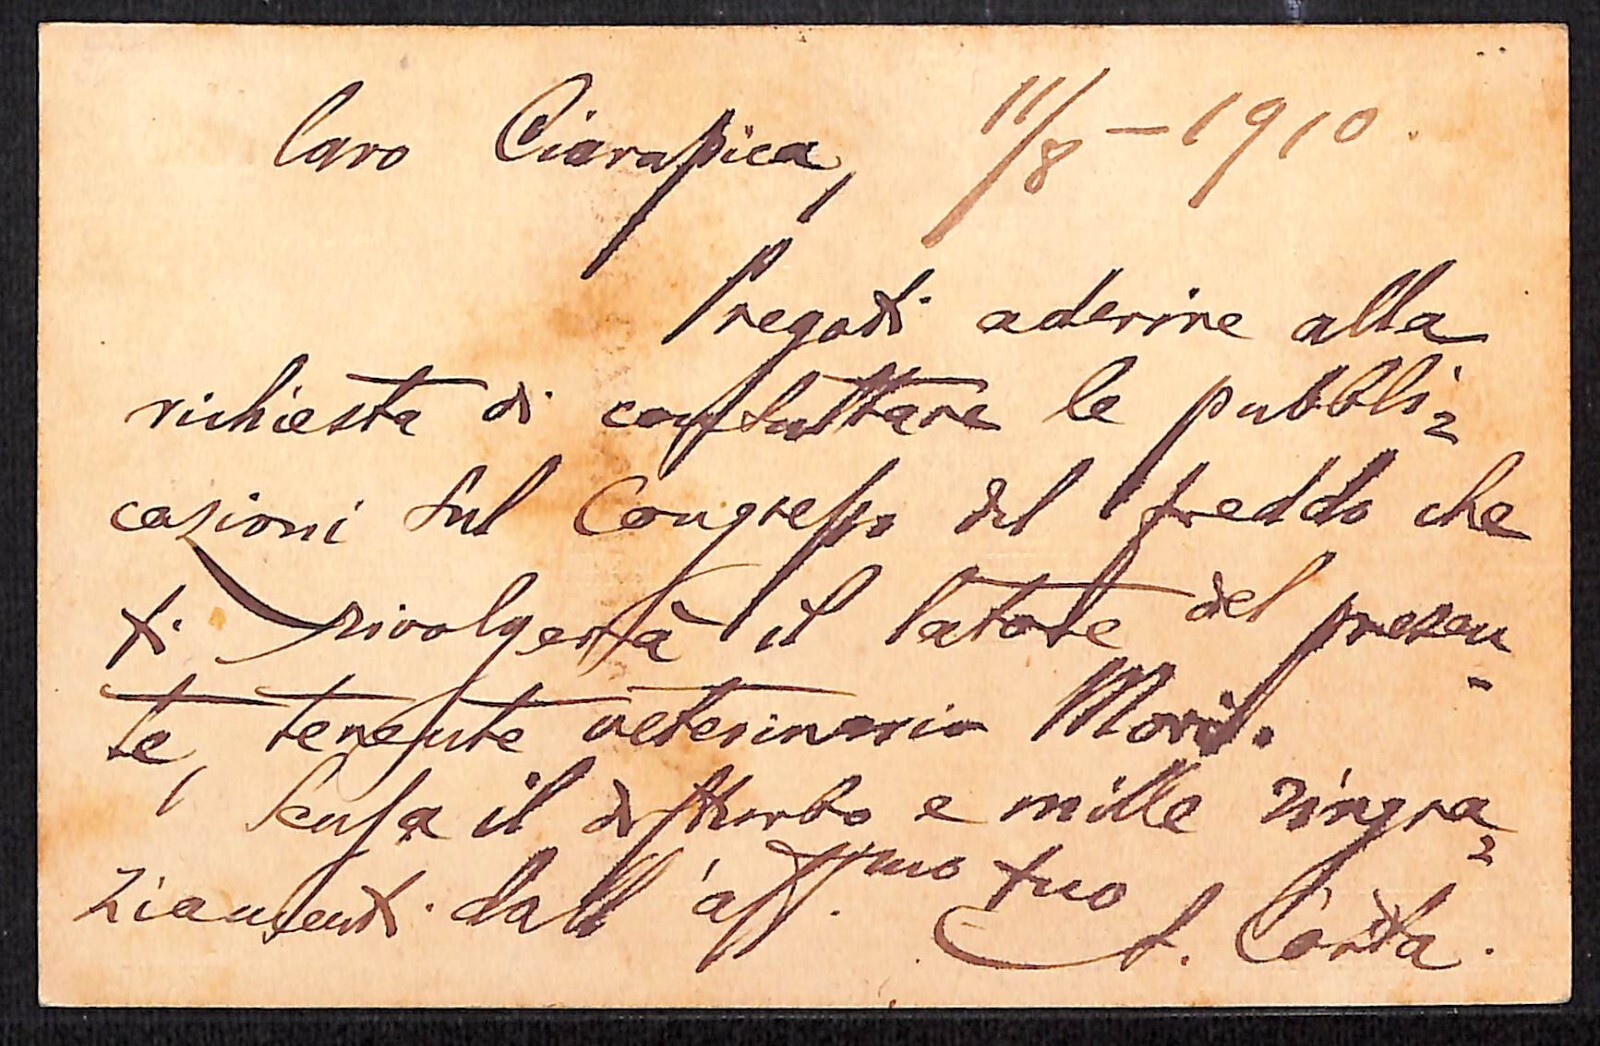 Caro Ciarapica, 11/8 – 1910.
Pregoti aderire alla
richiesta di consultare le pubbli=
cazioni sul Congresso del freddo che
ti rivolgerà il latore del presen=
te, tenente veterinario Mori.
Scusa il disturbo e mille ringra=
ziamenti dall'aff.mo tuo
A. Costa.